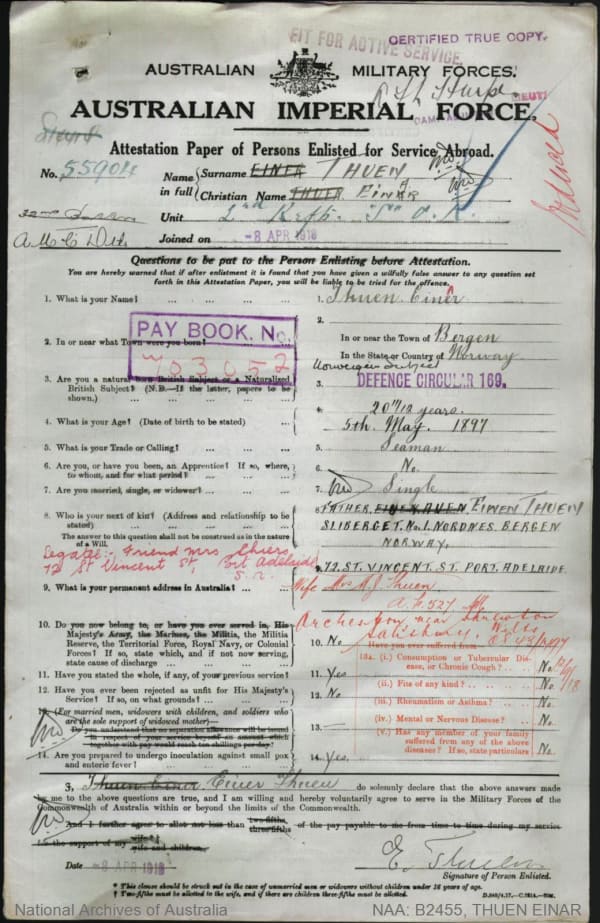 FIT FOR ACTIVE SERVICE.
CERTIFIED TRUE COPY.
AUSTRALIAN MILITARY FORCES.
AUSTRALIAN IMPERIAL FORCE.
Attestation Paper of Persons Enlisted for Service Abroad.
No. 55904
Name in full
Surname EINER THUEN
Christian Name THUEN EINER
Unit
Joined on -8 APR 1918
Questions to be put to the Person Enlisting before Attestation.
You are hereby warned that if after enlistment it is found that you have given a wilfully false answer to any question set
forth in this Attestation Paper, you will be liable to be tried for the offence.
1. What is your Name? ... 1. Thuen Einer
PAY BOOK. No.
703052
2. In or near what Town were you born? 2. In or near the Town of Bergen
In the State or Country of Norway
Norwegian Subject
3. Are you a natural born British Subject or a Naturalized
British Subject? (N.B.—If the latter, papers to be
shown.) 3. DEFENCE CIRCULAR 169.
4. What is your Age? (Date of birth to be stated) 4. 20 11/12 years.
5th. May. 1897
5. What is your Trade or Calling? 5. Seaman
6. Are you, or have you been, an Apprentice? If so, where,
to whom, and for what period? 6. No
7. Are you married, single, or widower? 7. Single
8. Who is your next of kin? (Address and relationship to be
stated) 8. FATHER, EINEN THUEN
SLIBERGET, No 1, NORDNES. BERGEN
NORWAY.
The answer to this question shall not be construed as in the nature
of a Will.
Legatee:- Friend Mrs
72 St Vincent St, Port Adelaide
S.A.
72, ST. VINCENT. ST. PORT. ADELAIDE
9. What is your permanent address in Australia?
Wife Mrs A. J. Thuen
Salisbury, Wilts
10. Do you now belong to, or have you ever served in, His
Majesty's Army, the Marines, the Militia, the Militia
Reserve, the Territorial Force, Royal Navy, or Colonial
Forces? If so, state which, and if not now serving,
state cause of discharge 10. No
Have you ever suffered from
10a. (i.) Consumption or Tubercular Dis-
ease, or Chronic Cough? No
(ii.) Fits of any kind? No
(iii.) Rheumatism or Asthma? No
(iv.) Mental or Nervous Disease? No
(v.) Has any member of your family
suffered from any of the above
diseases? If so, state particulars No
11. Have you stated the whole, if any, of your previous service? 11. Yes
12. Have you ever been rejected as unfit for His Majesty's
Service? If so, on what grounds? 12. No
13. (For married men, widowers with children, and soldiers who
are the sole support of widowed mother)—
Do you understand that no separation allowance will be issued
in respect of your service beyond an amount which
together with pay would reach ten shillings per day? 13.
14. Are you prepared to undergo inoculation against small pox
and enteric fever? 14. Yes
I, Thuen Einer Einer Thuen do solemnly declare that the above answers made
by me to the above questions are true, and I am willing and hereby voluntarily agree to serve in the Military Forces of the
Commonwealth of Australia within or beyond the limits of the Commonwealth.
And I further agree to allot not less than two-fifths three-fifths of the pay payable to me from time to time during my service
for the support of my wife* wife and children.
Date -8 APR 1918
E. Thuen
Signature of Person Enlisted.
* This clause should be struck out in the case of unmarried men or widowers without children under 18 years of age.
† Two-fifths must be allotted to the wife, and if there are children three-fifths must be allotted.
National Archives of Australia
NAA: B2455, THUEN EINAR